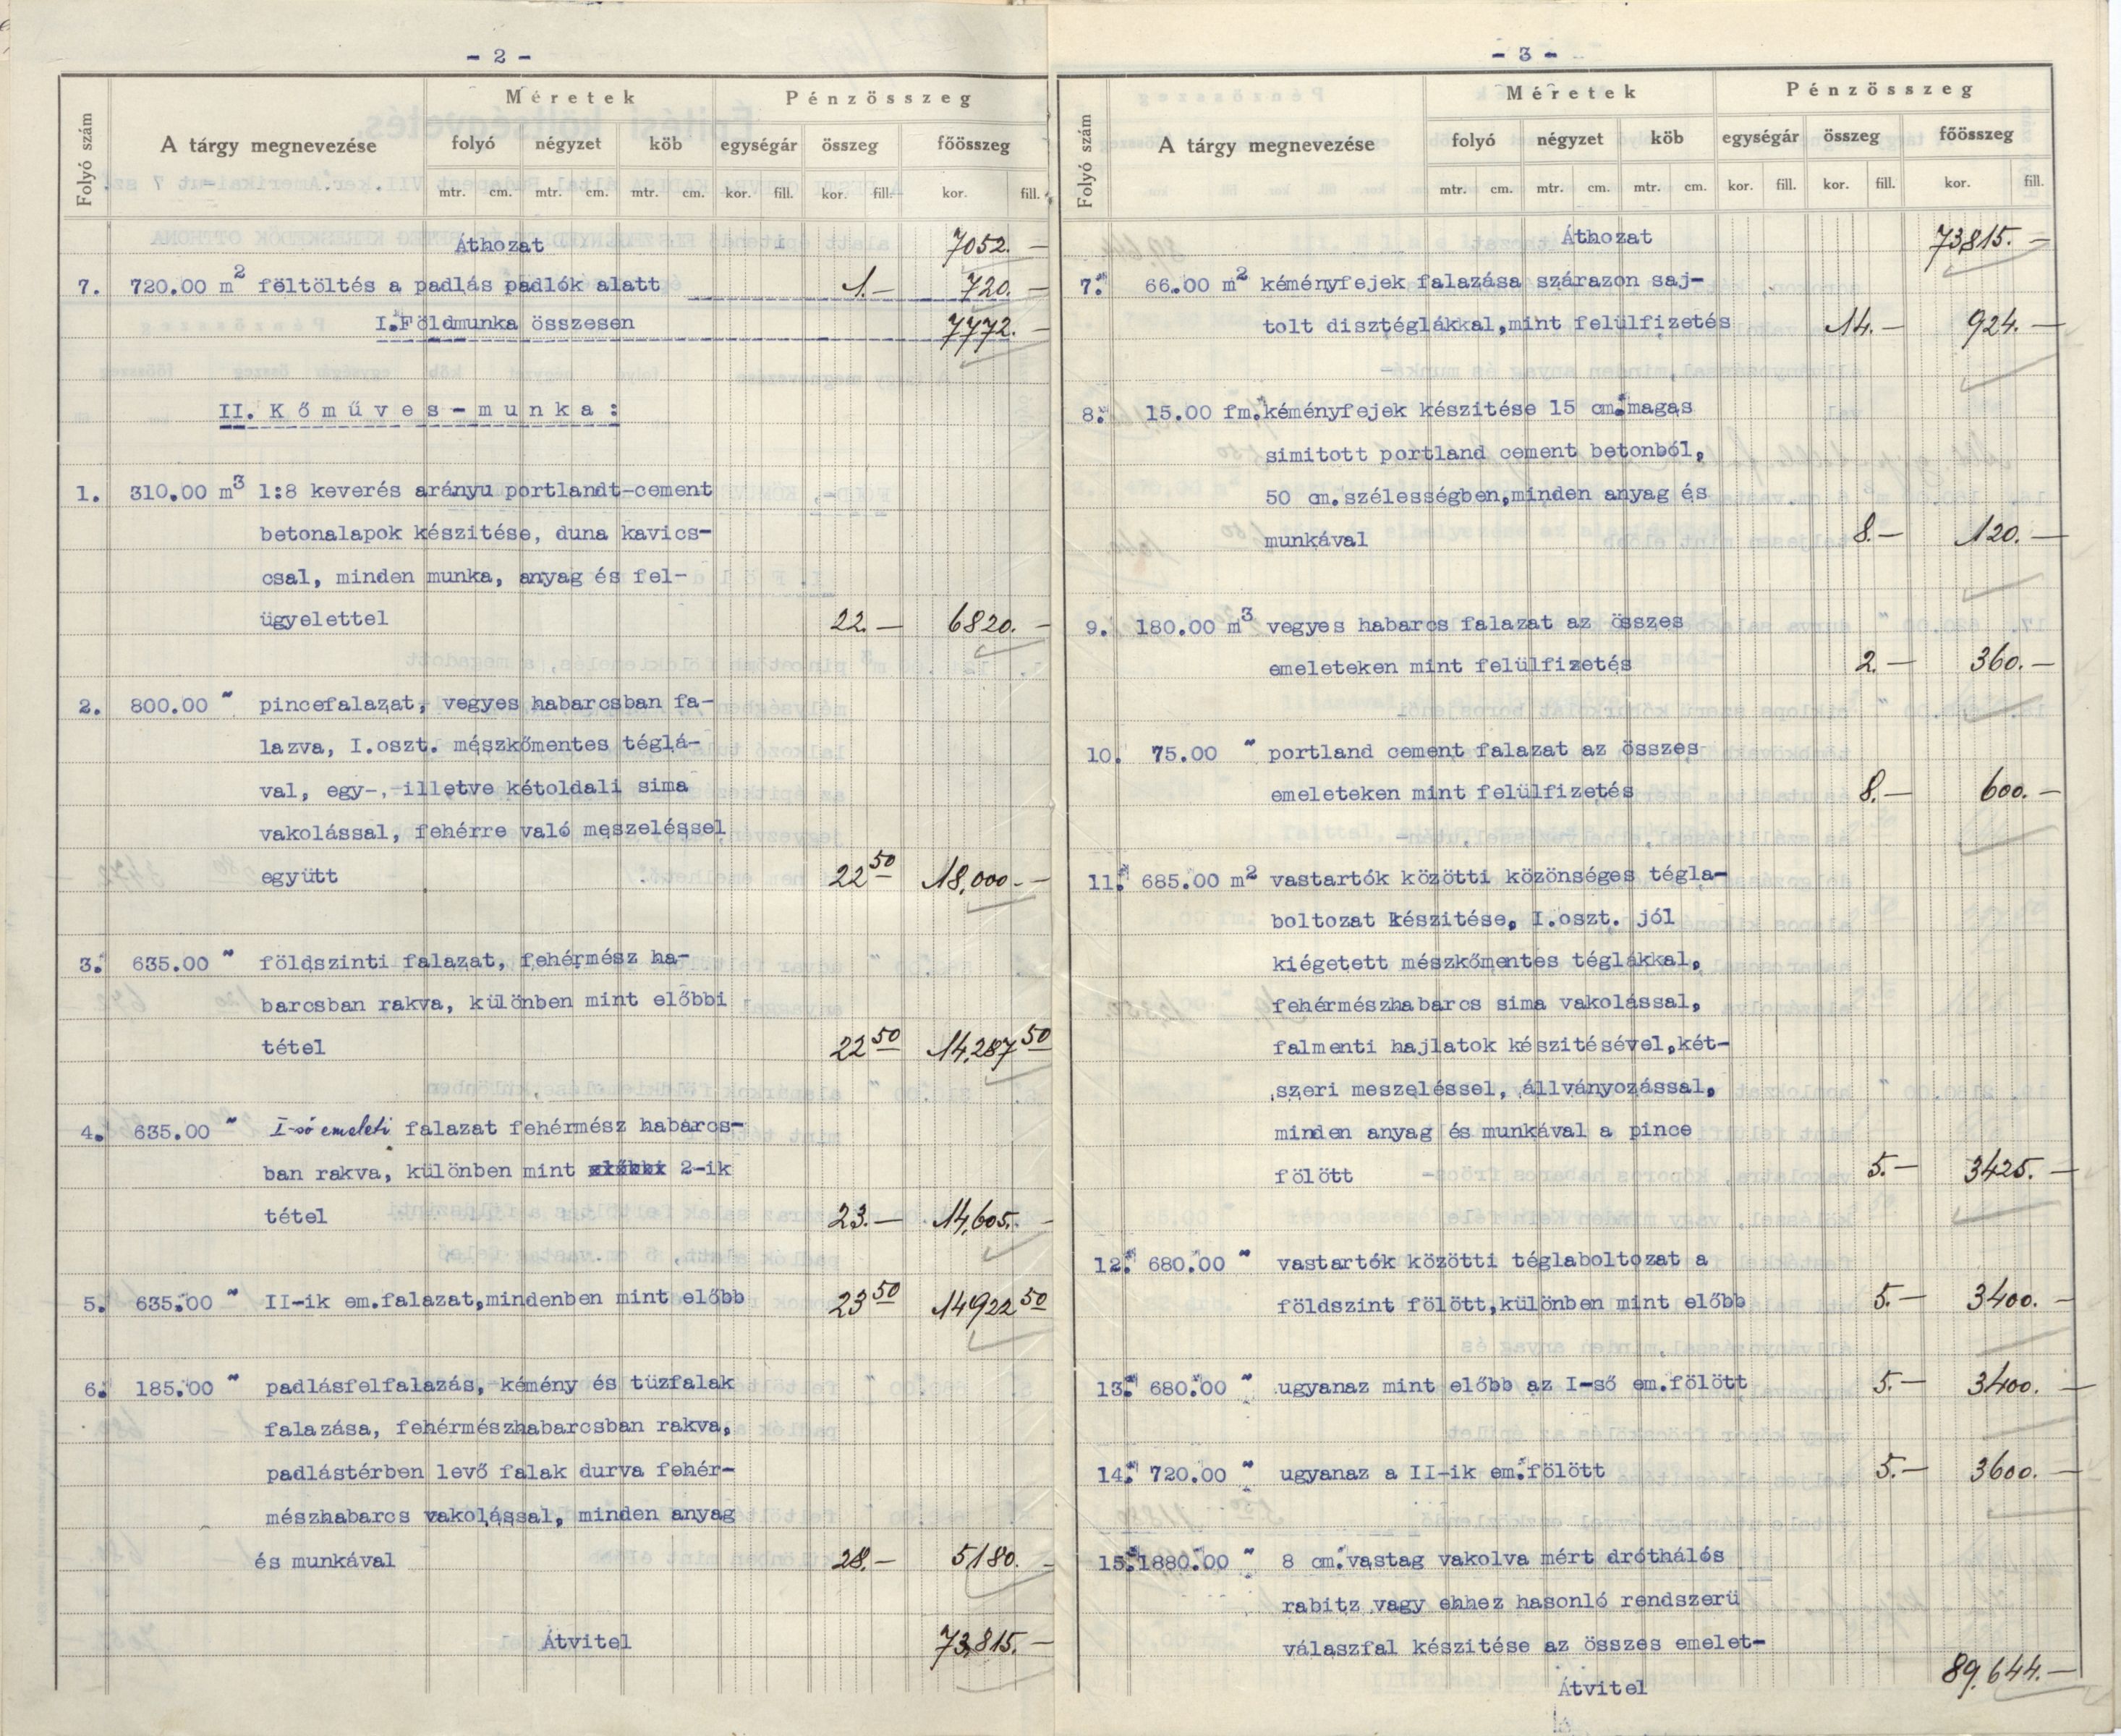 - 2 -
Folyó szám
A tárgy megnevezése
Méretek
Pénzösszeg
folyó négyzet köb egységár összeg főösszeg
mtr. cm. mtr. cm. mtr. cm. kor. fill. kor. fill. kor. fill.
Áthozat 7052.—
7. 720.00 m² föltöltés a padlás padlók alatt 1.— 720.—
I. Földmunka összesen 7772.—
II. Kőműves-munka:
1. 310.00 m³ 1:8 keverés arányu portlandt-cement
betonalapok készitése, duna kavics-
csal, minden munka, anyag és fel-
ügyelettel 22.— 6820.—
2. 800.00 " pincefalazat, vegyes habarcsban fa-
lazva, I.oszt. mészkőmentes téglá-
val, egy-, illetve kétoldali sima
vakolással, fehérre való meszeléssel
együtt 22 50 18,000.—
3. 635.00 " földszinti falazat, fehérmész ha-
barcsban rakva, különben mint előbbi
tétel 22 50 14,287 50
4. 635.00 " I-ső emeleti falazat fehérmész habarcs-
ban rakva, különben mint előbbi 2-ik
tétel 23.— 14,605.—
5. 635.00 " II-ik em.falazat,mindenben mint előbb 23 50 14922 50
6. 185.00 " padlásfelfalazás, kémény és tüzfalak
falazása, fehérmészhabarcsban rakva,
padlástérben levő falak durva fehér-
mészhabarcs vakolással, minden anyag
és munkával 28.— 5180.—
Átvitel 73,815.—
- 3 -
Folyó szám
A tárgy megnevezése
Méretek
Pénzösszeg
folyó négyzet köb egységár összeg főösszeg
mtr. cm. mtr. cm. mtr. cm. kor. fill. kor. fill. kor. fill.
Áthozat 73815.—
7. 66.00 m² kéményfejek falazása szárazon saj-
tolt disztéglákkal,mint felülfizetés 14.— 924.—
8. 15.00 fm.kéményfejek készitése 15 cm.magas
simitott portland cement betonból,
50 cm.szélességben,minden anyag és
munkával 8.— 120.—
9. 180.00 m³ vegyes habarcs falazat az összes
emeleteken mint felülfizetés 2.— 360.—
10. 75.00 " portland cement falazat az összes
emeleteken mint felülfizetés 8.— 600.—
11. 685.00 m² vastartók közötti közönséges tégla-
boltozat készitése, I.oszt. jól
kiégetett mészkőmentes téglákkal,
fehérmészhabarcs sima vakolással,
falmenti hajlatok készitésével,két-
szeri meszeléssel, állványozással,
minden anyag és munkával a pince
fölött 5.— 3425.—
12. 680.00 " vastartók közötti téglaboltozat a
földszint fölött,különben mint előbb 5.— 3400.—
13. 680.00 " ugyanaz mint előbb az I-ső em.fölött 5.— 3400.—
14. 720.00 " ugyanaz a II-ik em.fölött 5.— 3600.—
15. 1880.00 " 8 cm.vastag vakolva mért dróthálós
rabitz vagy ehhez hasonló rendszerü
válaszfal készitése az összes emelet-
Átvitel 89,644.—